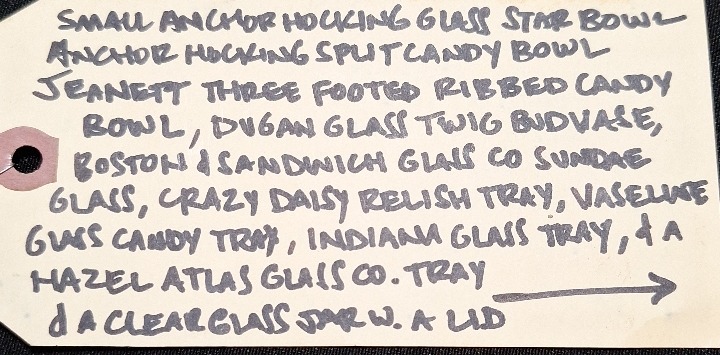 SMALL ANCHOR HOCKING GLASS STAR BOWL
ANCHOR HOCKING SPLIT CANDY BOWL
JEANETT THREE FOOTED RIBBED CANDY
BOWL, DUGAN GLASS TWIG BUDVASE,
BOSTON & SANDWICH GLASS CO SUNDAE
GLASS, CRAZY DAISY RELISH TRAY, VASELINE
GLASS CANDY TRAY, INDIANA GLASS TRAY, & A
HAZEL ATLAS GLASS CO. TRAY
& A CLEAR GLASS JAR W. A LID